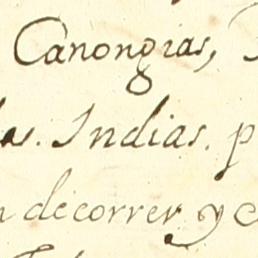 Canongias,
as. Indias. p
n decorrer y c